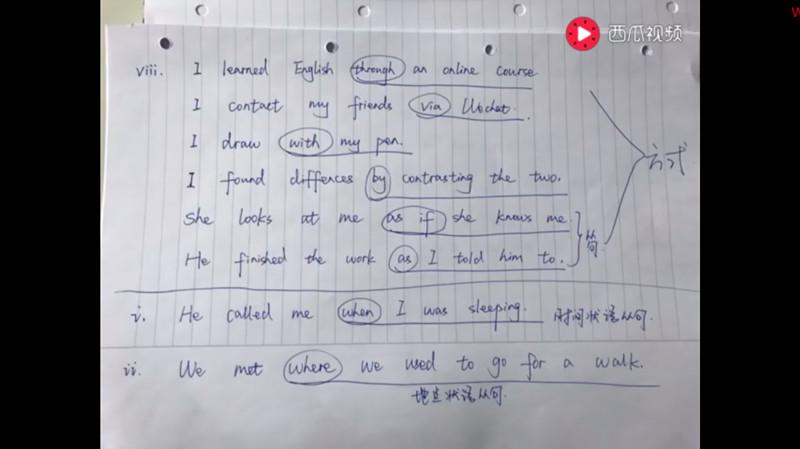 西瓜视频
viii. I learned English through an online course
I contact my friends via Wechat.
I draw with my pen.
I found diffences by contrasting the two.
方式
She looks at me as if she knows me.
从句
He finished the work as I told him to.
i. He called me when I was sleeping. 时间状语从句.
ii. We met where we used to go for a walk.
地点状语从句.